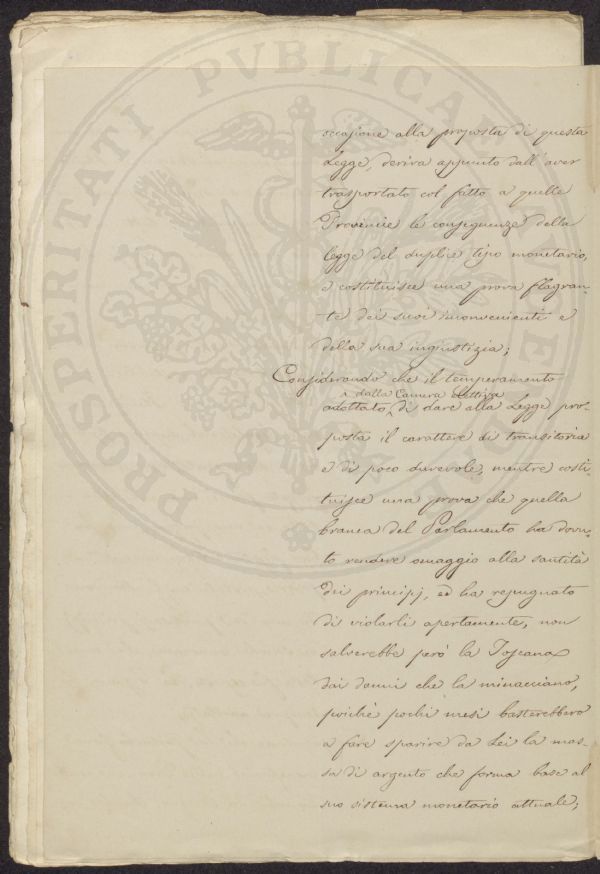 occasione alla proposta di questa
Legge, deriva appunto dall'aver
trasportato col fatto a quelle
Provincie le conseguenze della
legge del duplice tipo monetario,
e costituisce una prova flagran-
te dei suoi inconvenienti e
della sua ingiustizia;
Considerando che il temperamento
dalla Camera elettiva
adottato, di dare alla Legge pro-
posta il carattere di transitoria
e di poco durevole, mentre costi-
tuisce una prova che quella
branca del Parlamento ha dovu-
to rendere omaggio alla santità
dei principj, ed ha repugnato
di violarli apertamente, non
salverebbe però la Toscana
dai danni che la minacciano,
poichè pochi mesi basterebbero
a fare sparire da Lei la mas-
sa di argento che forma base al
suo sistema monetario attuale;
PROSPERITATI PVBLICAE